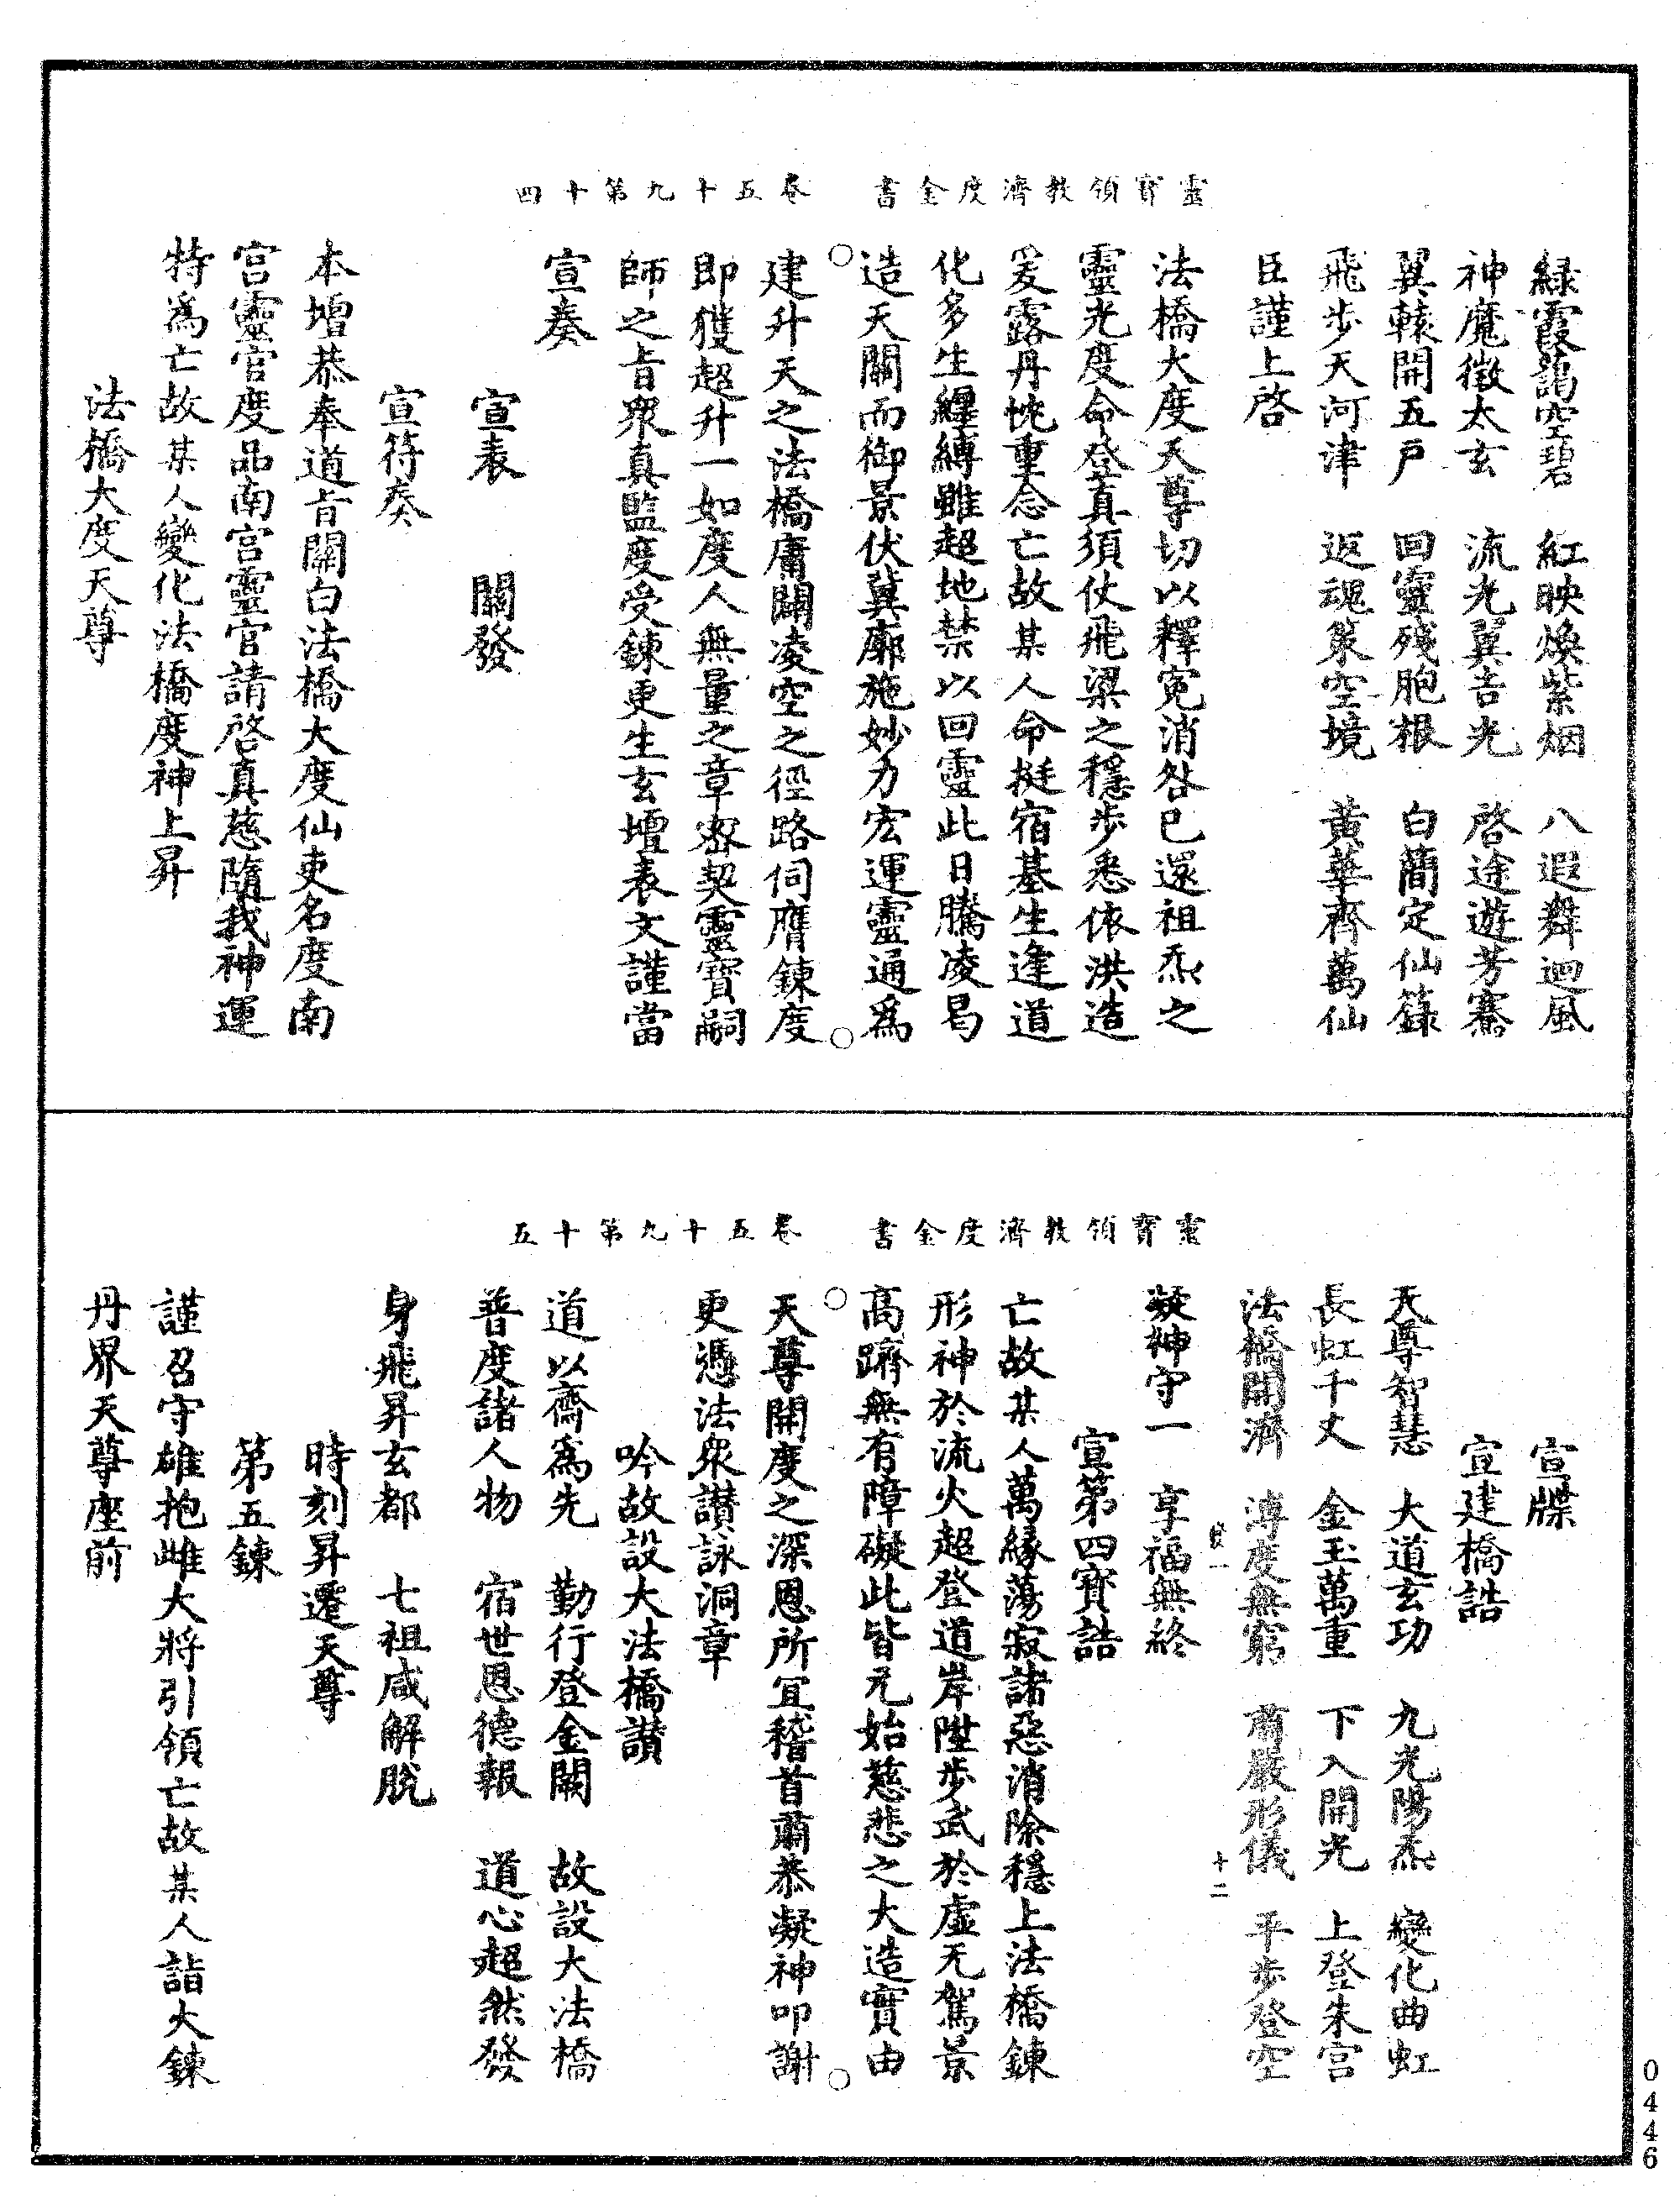 靈寶領教濟度金書 卷五十九第十四
綠霞藹空碧 紅映煥紫烟 八遐舞迴風
神魔徵太玄 流光翼吉光 啓途遊芳騫
翼轅開五戶 回靈殘胞根 白蕳定仙籙
飛步天河津 返魂策空境 黃華齊萬仙
臣謹上啓
法橋大度天尊切以釋寃消咎已還祖炁之
靈光度命登真須仗飛梁之穩步悉依洪造
爰露丹忱重念亡故某人命挺宿基生逢道
化多生纏縛雖超地禁以回靈此日騰凌曷
造天關而御景伏冀廓施妙力宏運靈通爲
建升天之法橋庸開凌空之徑路伺膺鍊度
即獲超升一如度人無量之章密契靈寶嗣
師之旨衆真監度受鍊更生玄壇表文謹當
宣奏
宣表 關發
宣符奏
本壇恭奉道旨關白法橋大度仙吏名度南
宮靈官度品南宮靈官請啓真慈隨我神運
特爲亡故某人變化法橋度神上昇
法橋大度天尊
靈寶領教濟度金書 卷五十九第十五
宣牒
宣建橋誥
天尊智慧 大道玄功 九光陽炁 變化曲虹
長虹千丈 金玉萬重 下入開光 上登朱宮
法橋開濟 溥度無窮 肅嚴形儀 平步登空
十二
凝神守一 享福無終
宣第四寶誥
亡故某人萬緣蕩寂諸惡消除穩上法橋鍊
形神於流火超登道岸陞步武於虛无駕景
高躋無有障礙此皆元始慈悲之大造實由
天尊開度之深恩所宜稽首肅恭凝神叩謝
更憑法衆讃詠洞章
吟故設大法橋讃
道以齋爲先 勤行登金闕 故設大法橋
普度諸人物 宿世恩德報 道心超然發
身飛昇玄都 七祖咸解脫
時刻昇遷天尊
第五鍊
謹召守雄抱雌大將引領亡故某人詣火鍊
丹界天尊座前
0446